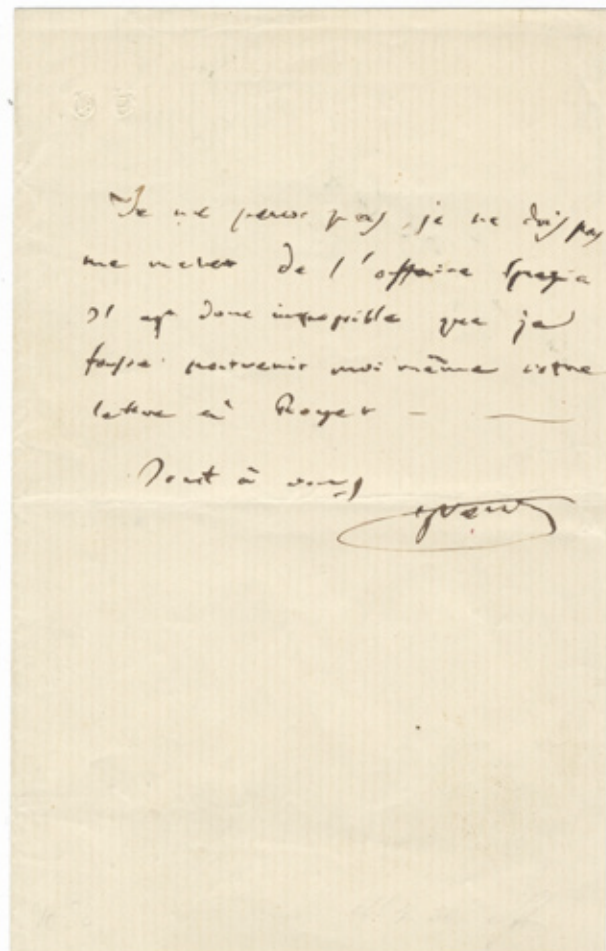 Je ne peux pas, je ne dois pas
me meler de l'affaire Spezia
Il est donc impossible que je
fasse parvenir moi même votre
lettre à Royer —
Tout à vous
GVerdi